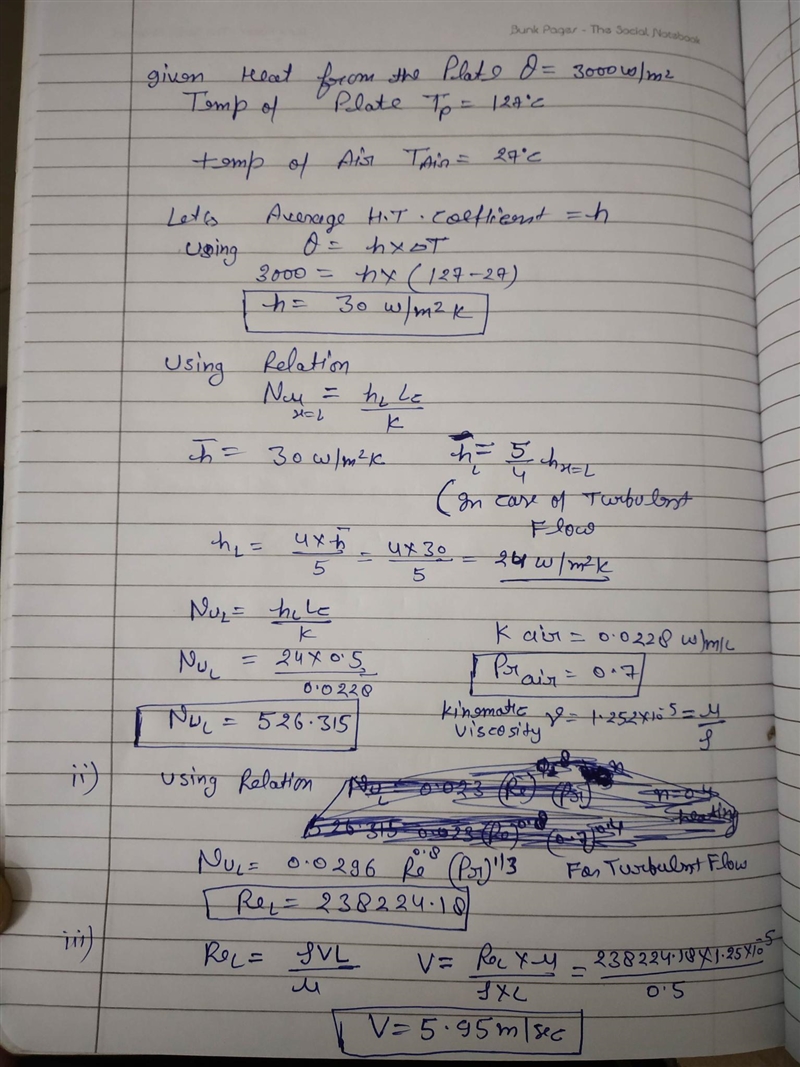 Bunk Pages - The Social Notebook
given Heat from the Plate Q = 3000 w/m2
Temp of Plate Tp = 127°C
temp of Air TAir = 27°C
Let's Average H.T. coefficient = h
Using Q = h × ΔT
3000 = h × (127-27)
h = 30 w/m2 k
Using Relation
Nu x=L = hL Lc / k
h̄ = 30 w/m2k h̄L = 5/4 hx=L
(In case of Turbulent
Flow
hL = 4×h̄/5 = 4×30/5 = 24 w/m2k
NuL = hL Lc / k
K air = 0.0228 w/m/c
NuL = 24×0.5 / 0.0228
Pr air = 0.7
NuL = 526.315
Kinematic Viscosity ν = 1.252×10-5 = μ/ρ
ii) Using Relation NuL = 0.023 (Re)0.8 (Pr)n n=0.4
526.315 0.023 (Re)0.8 (0.7)0.4 heating
NuL = 0.0296 Re0.8 (Pr)1/3 For Turbulent Flow
ReL = 238224.18
iii)
ReL = ρVL/μ V = ReL × μ / ρ×L = 238224.18×1.25×10-5 / 0.5
V = 5.95 m/sec